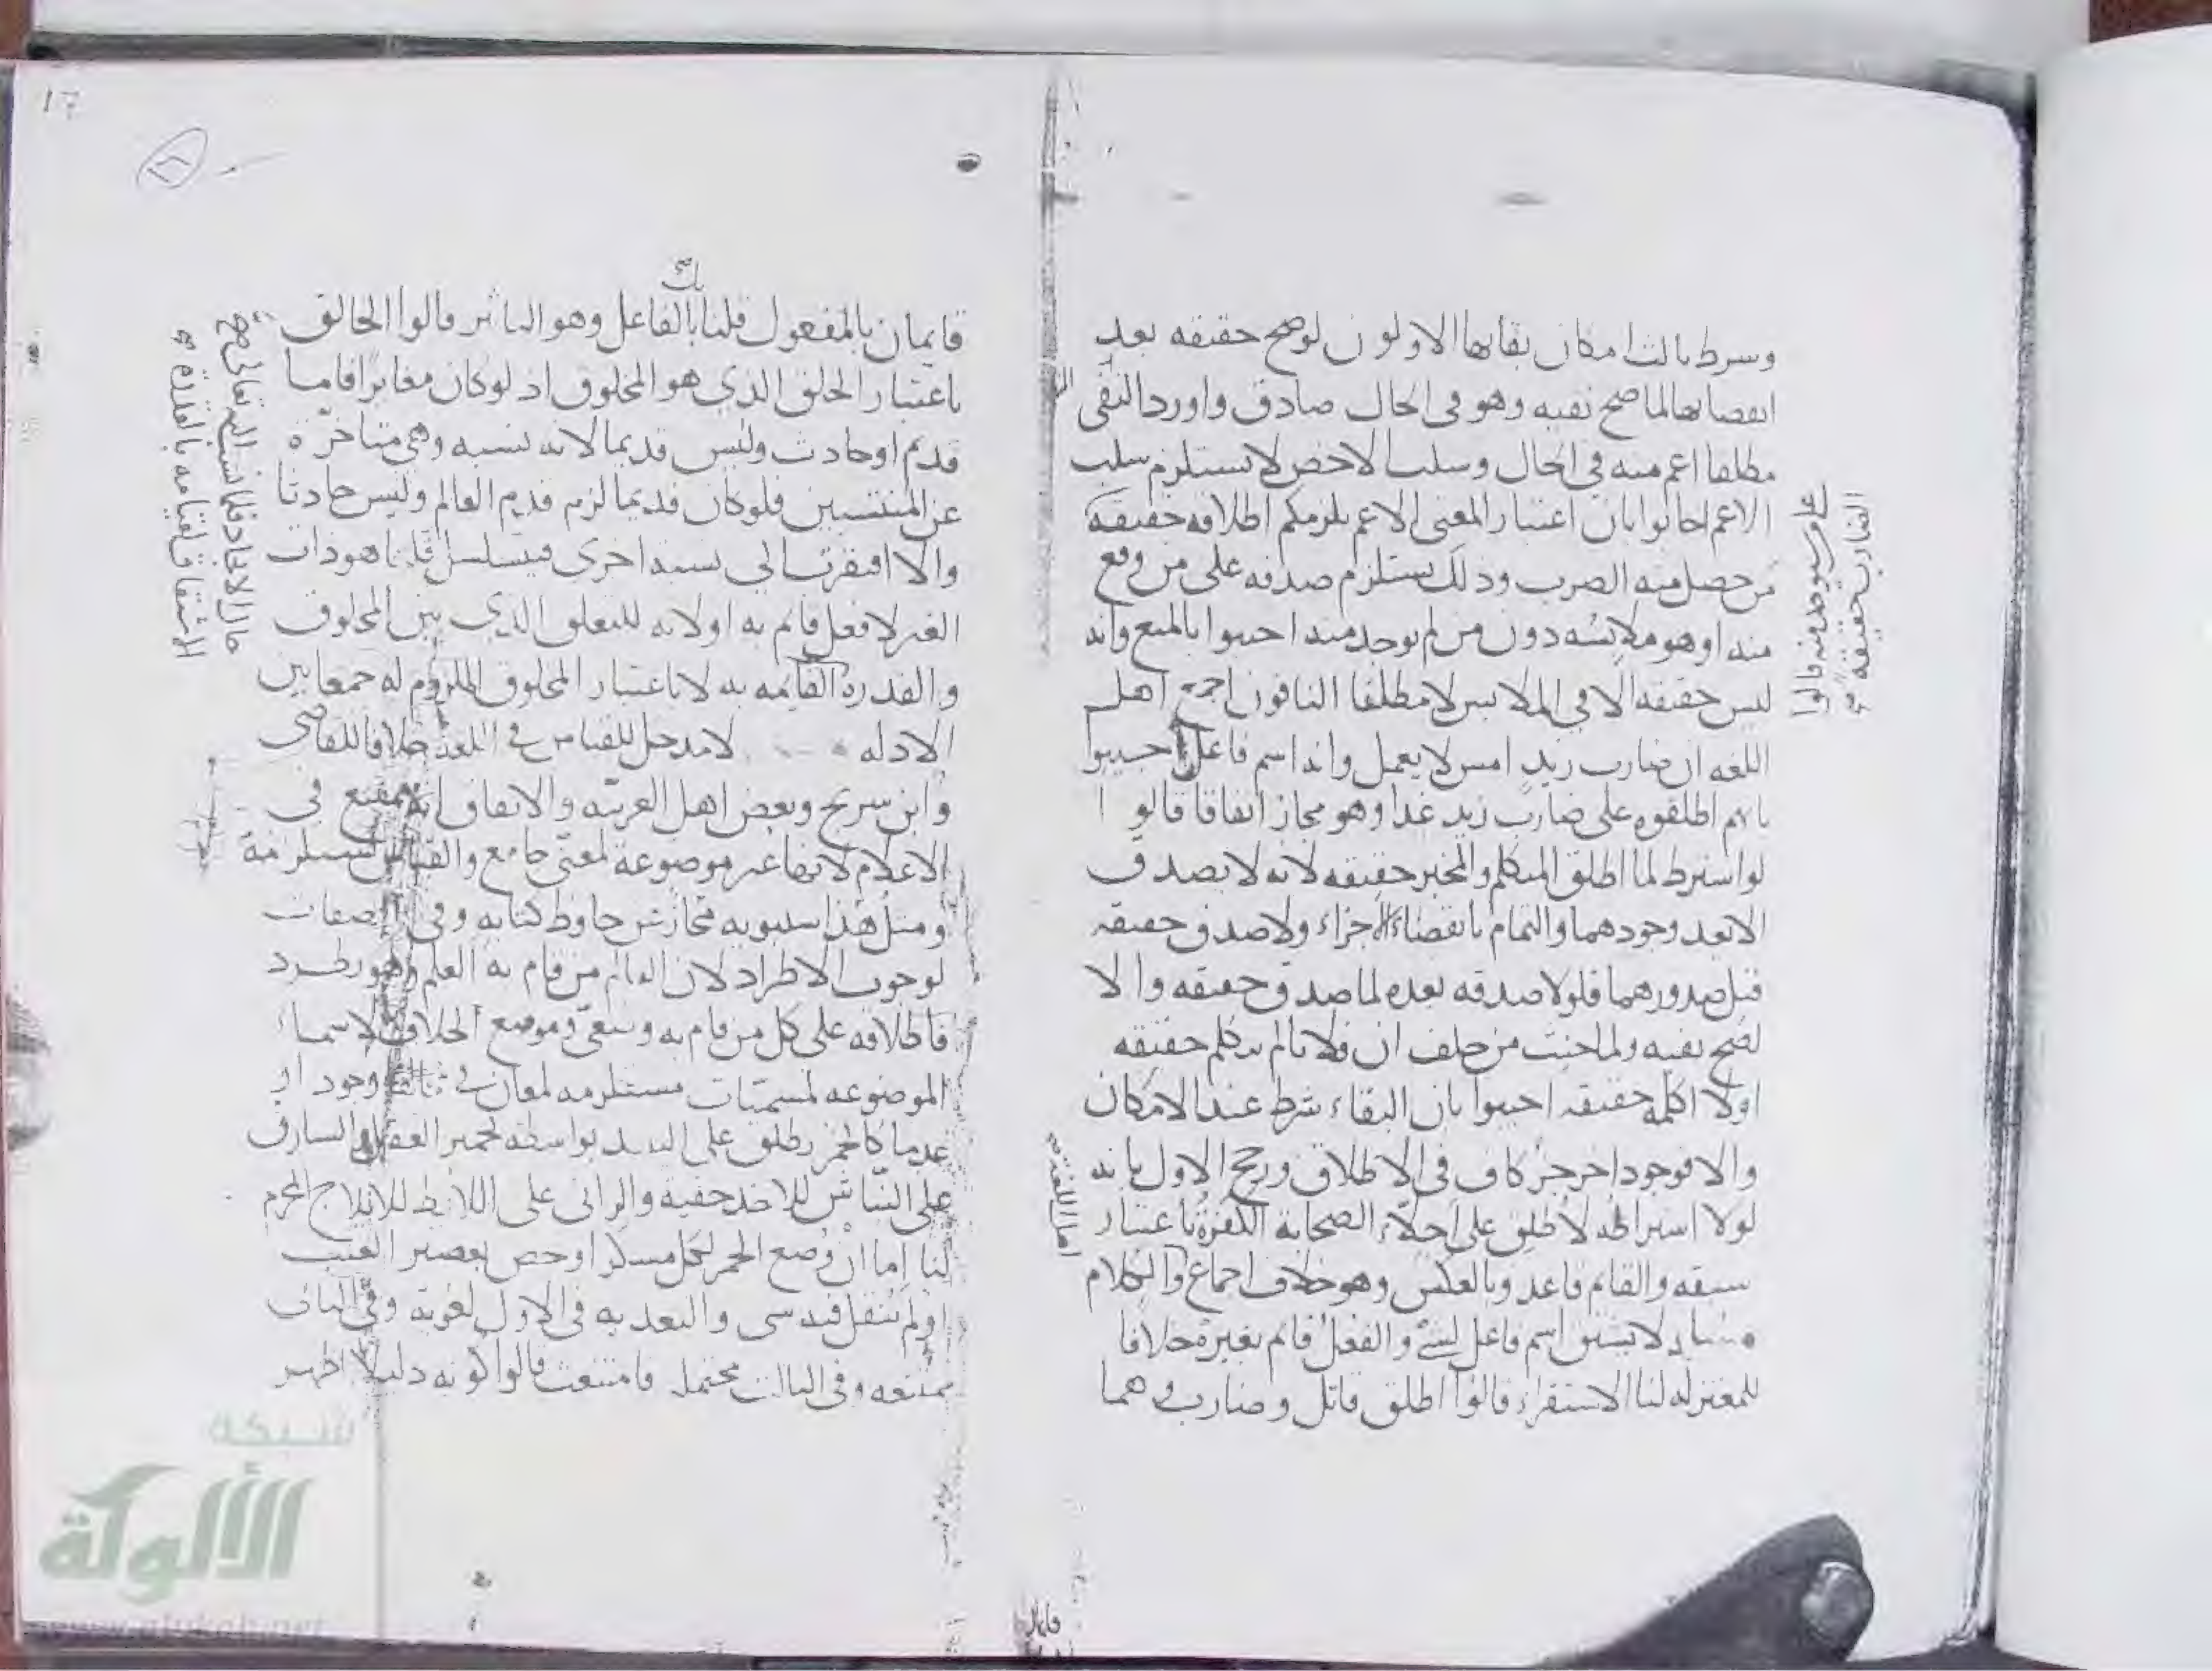 وشرط ثالث امكان بقايها الاولون لوصح حقيقه بعد
انقضايها لما صح نفيه وهو في الحال صادق واورد النفي
مطلقا اعم منه في الحال وسلب الاخص لا يستلزم سلب
الاعم اجابوا بان اعتبار المعنى الاعم يلزمكم اطلاقه حقيقه
من حصل منه الضرب وذلك يستلزم صدقه على من وقع
منه او هو ملابسه دون من لم يوجد منه اجيبوا بالمنع وانه
ليس حقيقه الا في الملابس لا مطلقا النافون اجمع اهل
اللغه ان ضارب زيد امس لا يعمل وانه اسم فاعل اجيبوا
بانهم اطلقوه على ضارب زيد غدا وهو مجاز اتفاقا قالوا
لو اشترط لما اطلق المتكلم والمخبر حقيقه لانه لا يصدق
الا بعد وجودهما والتمام بانقضاء الاجزاء ولا صدق حقيقه
قبل صدورهما فلولا صدقه بعده لما صدق حقيقه والا
لصح نفيه ولما حنث من حلف ان فلانا لم يتكلم حقيقه
اولا اكلمه حقيقه اجيبوا بان البقاء شرط عند الامكان
والا فوجود اخر جزء كاف في الاطلاق ورجح الاول بانه
لولا اشتراطه لاطلق على اجلاء الصحابة الكفرة باعتبار
سبقه والقائم قاعد وبالعكس وهو خلاف اجماع والكلام
لا يشتق اسم فاعل لشئ والفعل قائم بغيره خلافا
للمعتزله لنا الاستقراء قالوا اطلق قاتل وضارب وهما
الضارب حقيقة
قايمان بالمفعول قلنا بل بالفاعل وهو التاثير قالوا الخالق
باعتبار الخلق الذي هو المخلوق اذ لو كان مغايرا فاما
قديم او حادث وليس قديما لانه نسبه وهي متاخرة
عن المنتسبين فلو كان قديما لزم قدم العالم وليس حادثا
والا افتقرت الى نسبه اخرى فيتسلسل قلنا هو ذات
الغير لا فعل قائم به او لانه للتعلق الذي بين المخلوق
والقدرة القائمه به لا باعتبار المخلوق الملزوم له جمعا بين
الادله لا مدخل للقياس في اللغه خلافا للقاضي
وابن سريج وبعض اهل العربيه والاتفاق انه ممتنع في
الاعلام لانها غير موضوعه لمعنى جامع والقياس مستلزمة
ومثل هذا سيبويه مجاز عن حافظ كتابه وفي الصفات
لوجوب الاطراد لان العالم من قام به العلم وهو مطرد
فاطلاقه على كل من قام به وموضع الخلاف الاسماء
الموضوعه لمسميات مستلزمه لمعان في وجودا او
عدما كالخمر يطلق على النبيذ بواسطه تخمير العقل والسارق
على النباش للاخذ خفية والزاني على اللائط للايلاج المحرم
لنا اما ان وضع الخمر لكل مسكر او خص بعصير العنب
او لم ينقل فيه شى والتعديه في الاول لغوية وفي الثاني
ممتنعه وفي الثالث محتمله فامتنعت قالوا كونه دليلا اظهر
17
شبكة
الألوكة
www.alukah.net